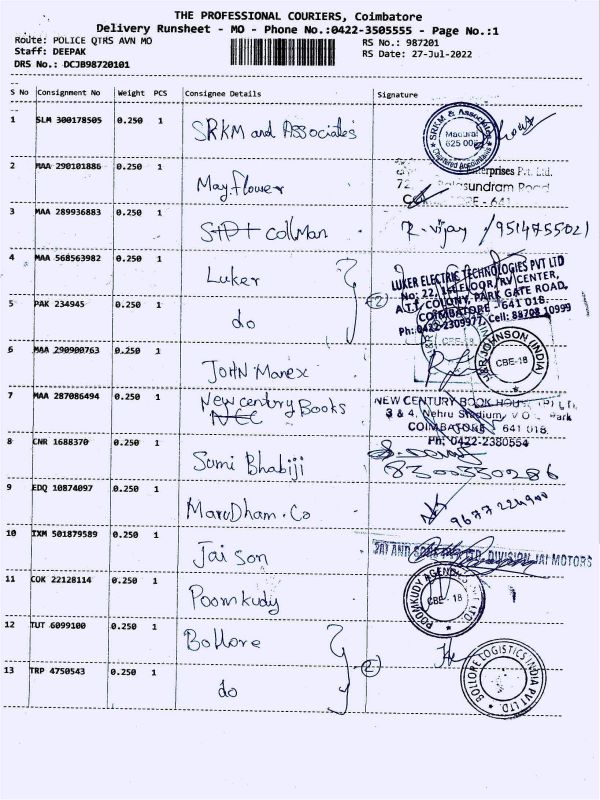 THE PROFESSIONAL COURIERS, Coimbatore
Delivery Runsheet - MO - Phone No.:0422-3505555 - Page No.:1
Route: POLICE QTRS AVN MO
RS No.: 987201
Staff: DEEPAK
RS Date: 27-Jul-2022
DRS No.: DCJB98720101
S No Consignment No Weight PCS Consignee Details Signature
1 SLM 300178505 0.250 1 SRKM and Associates
SRKM & Associates Madurai 625 002 Chartered Accountants
2 MAA 290101886 0.250 1 Mayflower
Enterprises Pvt. Ltd.
72, Balasundram Road
641
3 MAA 289936883 0.250 1 R. Vijay / 9514755021
4 MAA 568563982 0.250 1 Luker
LUKER ELECTRIC TECHNOLOGIES PVT LTD
No: 22, FLOOR, RV CENTER,
A.T.T. COLONY, PARK GATE ROAD,
COIMBATORE - 641 018.
Ph: 0422-2309977, Cell: 88708 10999
5 PAK 234945 0.250 1 do (2)
6 MAA 290900763 0.250 1 JOHN Marex
JOHNSON (INDIA) CBE-18
7 MAA 287086494 0.250 1 New century Books
NCC
NEW CENTURY BOOK HOUSE (P) LTD.
3 & 4, Nehru Stadium, V O C Park
COIMBATORE - 641 018.
Ph: 0422-2380554
8 CNR 1688370 0.250 1 Sumi Bhabiji
8300330286
9 EDQ 10874097 0.250 1 MaruDham.Co
9677 224900
10 IXM 501879589 0.250 1 Jai Son
JAI AND SONS PVT LTD, DIVISION JAI MOTORS
11 COK 22128114 0.250 1 Poomkudy
POOMKUDY AGENCIES PVT. LTD. CBE - 18
12 TUT 6099100 0.250 1 Bollore
13 TRP 4750543 0.250 1 do (2)
BOLLORE LOGISTICS INDIA PVT LTD.